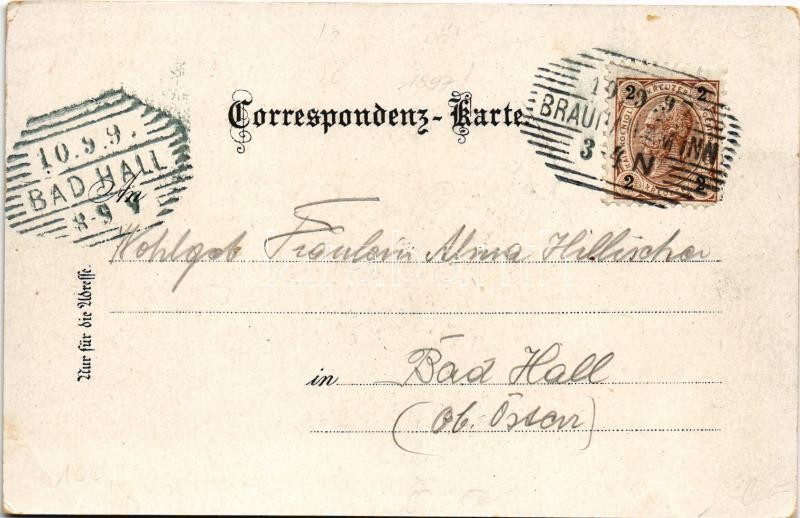 1897
Correspondenz-Karte
2 KREUZER 2
BRAUNAU AM INN
3-4 N
2 2
10.9.9.
BAD HALL
8-9 V
An
Wohlgeb Fräulein Alma Hillischer
Nur für die Adresse.
in Bad Hall
(Ob. Österr)